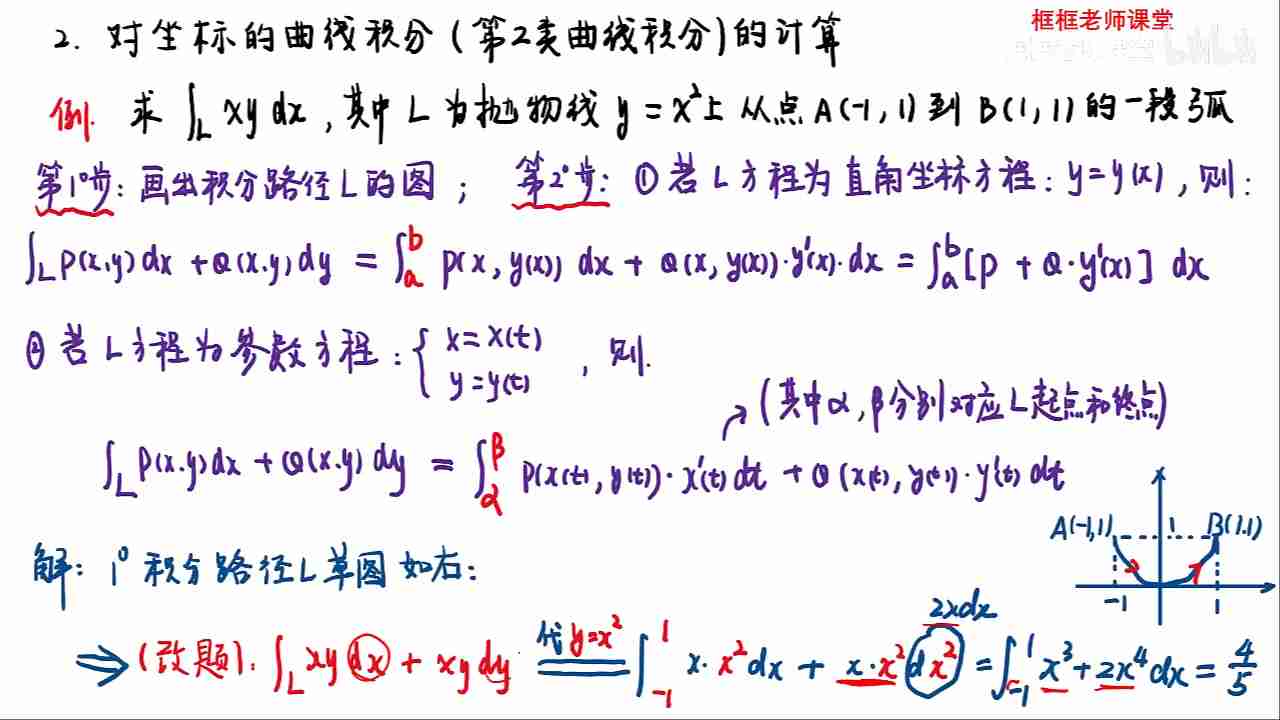 框框老师课堂
2. 对坐标的曲线积分(第2类曲线积分)的计算
例. 求 ∫_L xy dx, 其中 L 为抛物线 y = x² 上 从点 A(-1,1) 到 B(1,1) 的一段弧
第1°步: 画出积分路径L的图; 第2°步: ① 若 L 方程为直角坐标方程: y=y(x), 则:
∫_L P(x,y)dx + Q(x.y)dy = ∫_a^b P(x, y(x)) dx + Q(x, y(x))·y'(x)·dx = ∫_a^b [P + Q·y'(x)] dx
② 若 L 方程为参数方程: { x = x(t)
y = y(t) , 则.
(其中α, β分别对应L起点和终点)
∫_L P(x.y)dx + Q(x.y) dy = ∫_α^β P(x(t), y(t))·x'(t) dt + Q(x(t), y(t))·y'(t) dt
A(-1,1) 1 B(1.1)
-1 1
解: 1° 积分路径L草图如右:
2xdx
⇒ (改题): ∫_L xy dx + xy dy 代y=x² ∫_{-1}^1 x·x²dx + x·x² dx² = ∫_{-1}^1 x³+2x⁴ dx = 4/5